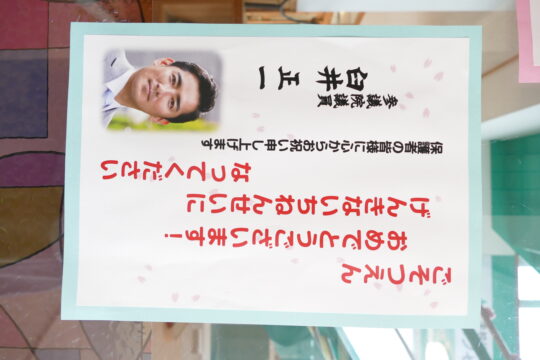 ごそつえん
おめでとうございます!
げんきないちねんせいに
なってください
保護者の皆様に心からお祝い申し上げます
参議院議員
臼井 正一